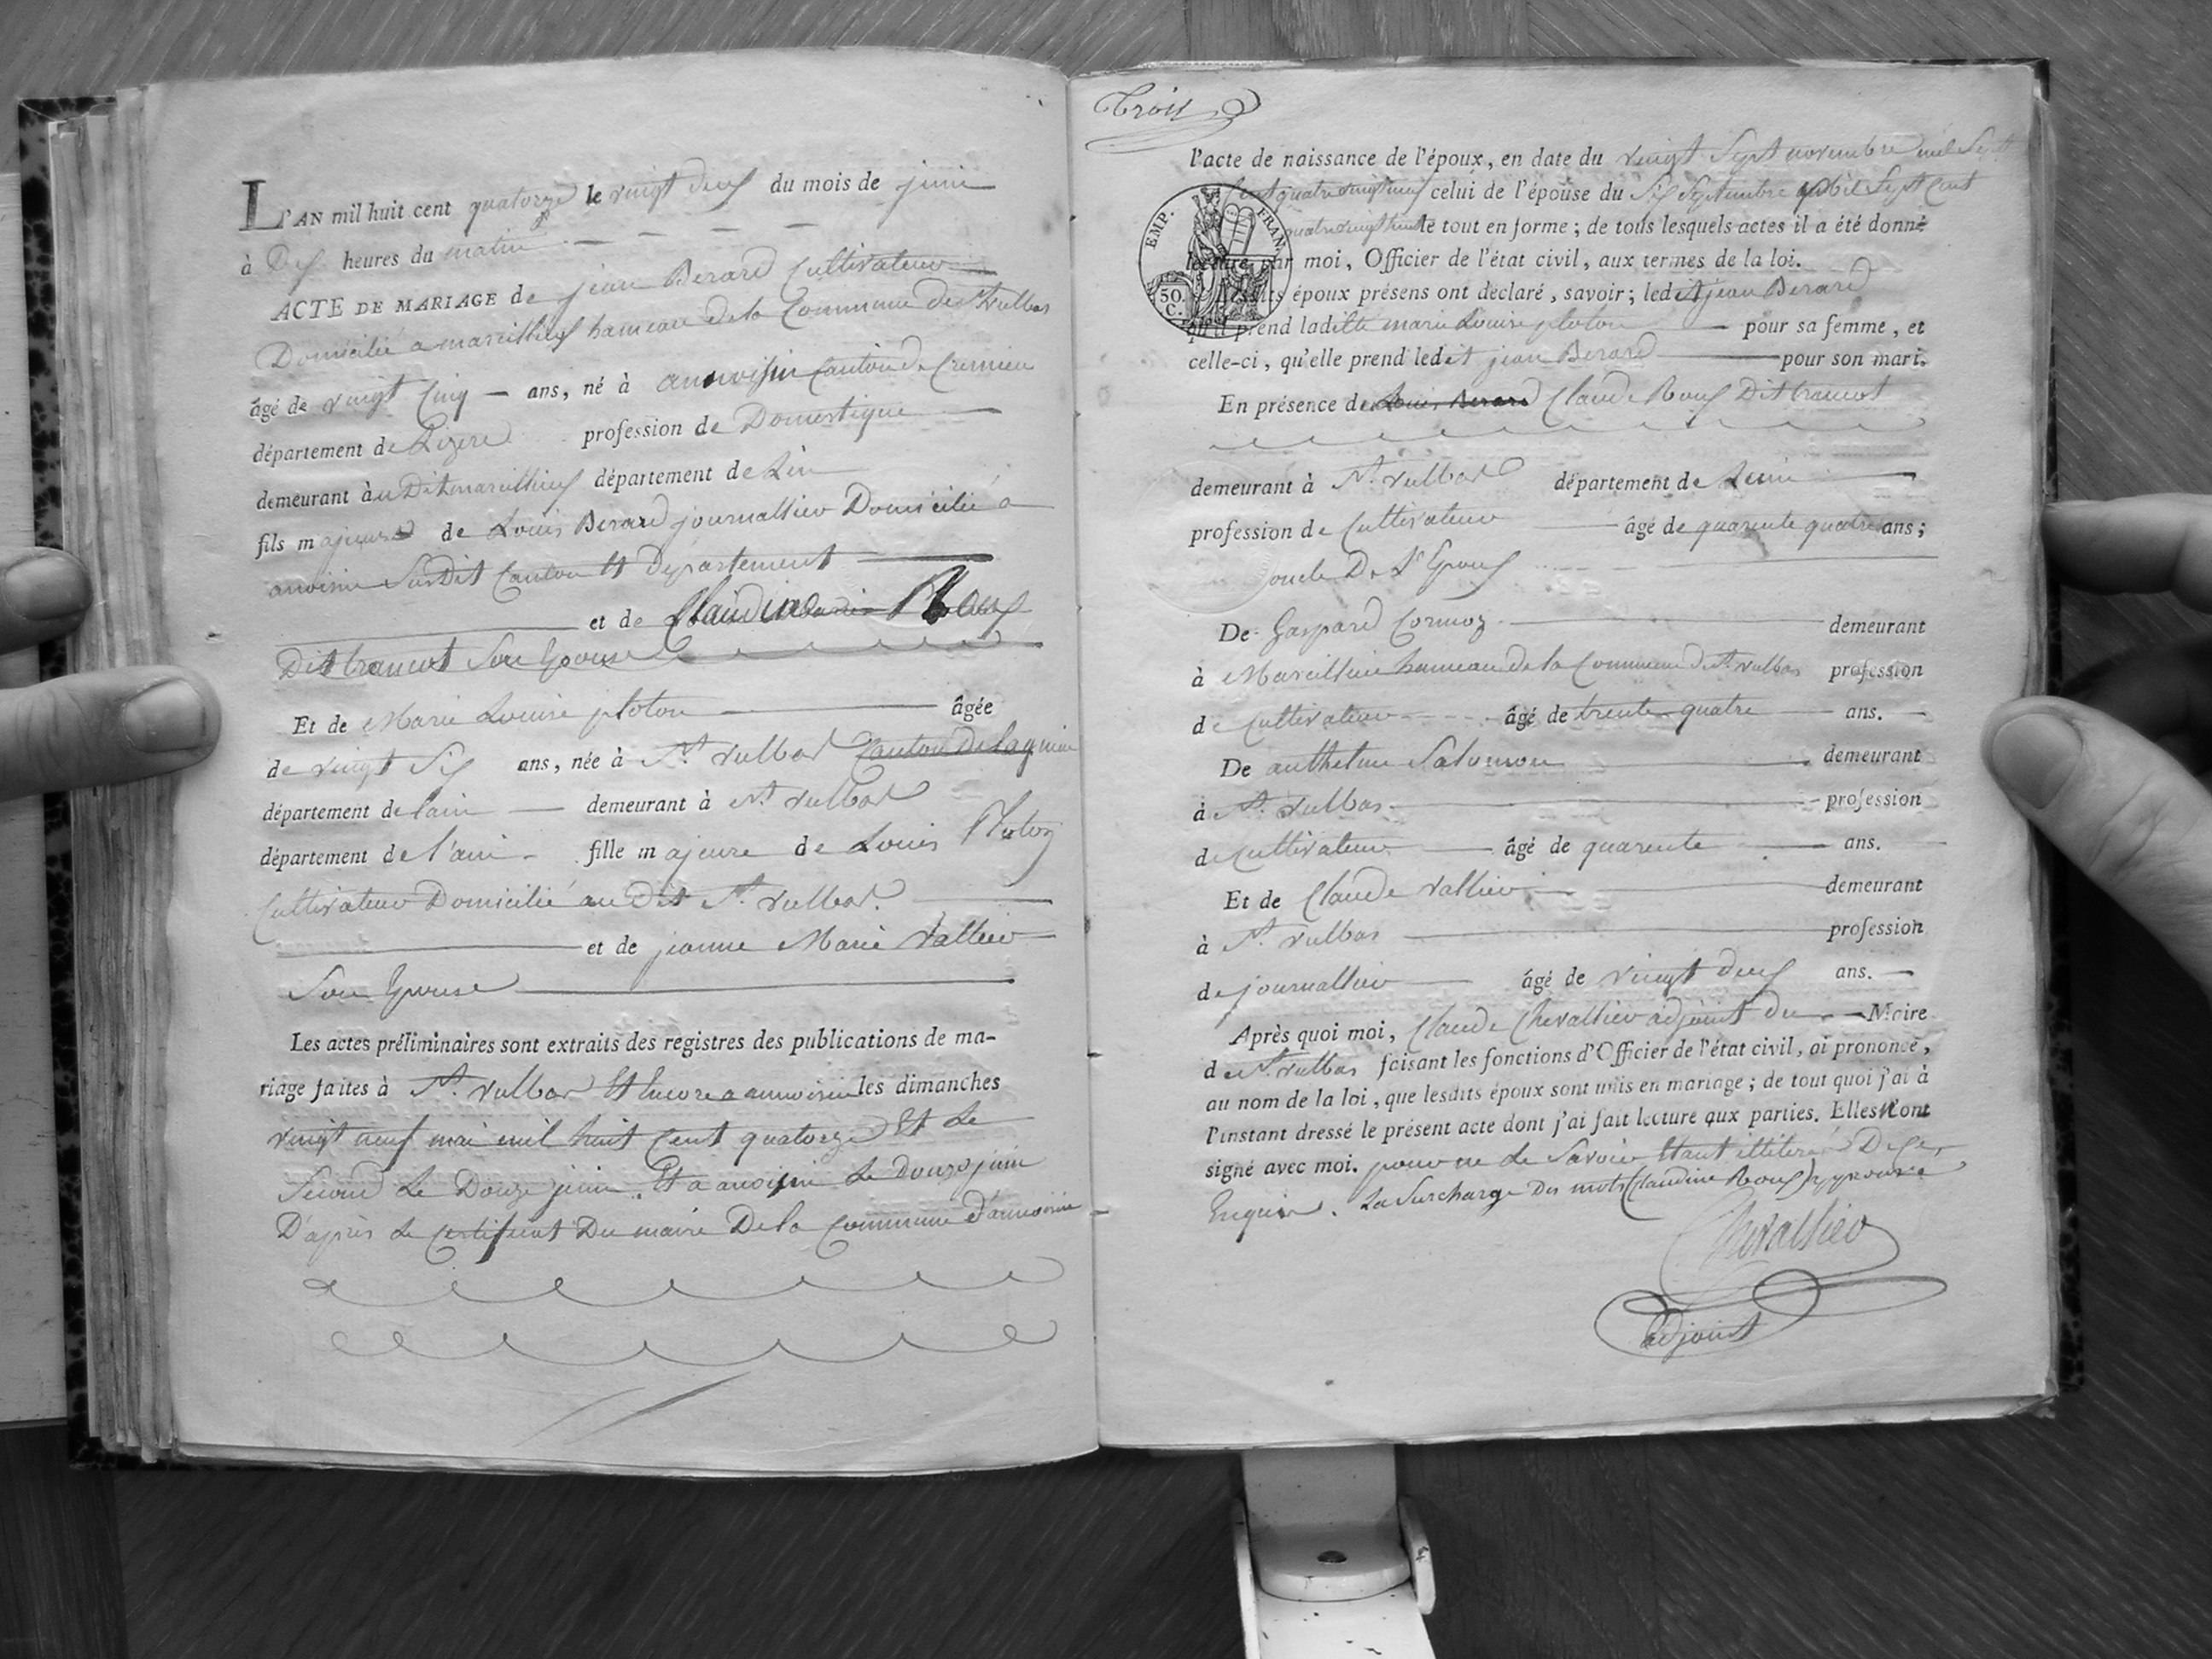 L'AN mil huit cent quatorze le vingt deux du mois de juin
à Dix heures du matin
ACTE DE MARIAGE de jean Berard Cultivateur
Domicilié a marcillieux hameau de la Commune de St. Vulbas
âgé de vingt Cinq ans, né à anoisin Canton de Cremieu
département de Lizere profession de Domestique
demeurant à au Dit marcillieux département de Lin
fils majeur de Louis Berard journallier Domicilié a
anoisin Susdit Canton Et Département
et de Claudine Roux
Dit trancot Son Epouse
Et de Marie Louise ploton âgée
de vingt Six ans, née à St. Vulbas Canton de lagnieu
département de lain demeurant à St. Vulbas
département de l'ain fille majeure de Louis Ploton
Cultivateur Domicilié au dit St. Vulbas.
et de jeanne Marie Vallier
Son Epouse
Les actes préliminaires sont extraits des registres des publications de ma-
riage faites à St. Vulbas Et Encore a annoisin les dimanches
vingt neuf mai mil huit Cent quatorze Et Le
Second Le Douze juin. Et a anoisin Le Douze juin
D'après Le Certificat Du maire De la Commune d'annoisin
Trois
l'acte de naissance de l'époux, en date du vingt Sept novembre mil Sept
Cent quatre vingt neuf celui de l'épouse du Six Septembre mil Sept Cent
quatre vingt huit le tout en forme ; de tous lesquels actes il a été donné
lecture par moi, Officier de l'état civil, aux termes de la loi.
Lesdits époux présens ont déclaré, savoir ; ledit jean Berard
qu'il prend ladite marie Louise ploton pour sa femme, et
celle-ci, qu'elle prend ledit jean Berard pour son mari.
En présence de Louis Berard Claude Roux Dit trancot
demeurant à St. Vulbas département de Lain
profession de Cultivateur âgé de quarente quatre ans ;
oncle De L'Epoux
De Gaspard Cormoz demeurant
à Marcillieu hameau de la Commune de St. Vulbas profession
de Cultivateur âgé de trente quatre ans.
De anthelme Salomon demeurant
à St. Vulbas profession
de Cultivateur âgé de quarente ans.
Et de Claude Vallier demeurant
à St. Vulbas profession
de journallier âgé de vingt deux ans.
Après quoi moi, Claude Chevallier adjoint du Maire
de St. Vulbas faisant les fonctions d'Officier de l'état civil, ai prononcé,
au nom de la loi, que lesdits époux sont unis en mariage ; de tout quoi j'ai à
l'instant dressé le présent acte dont j'ai fait lecture aux parties. Elles n'ont
signé avec moi. pour ne Le Savoir Etant illiteré De Ce
Enquis. La Surcharge Des mots Claudine Roux approuvé
Chevallier
adjoint
EMP. FRAN.
50.
C.